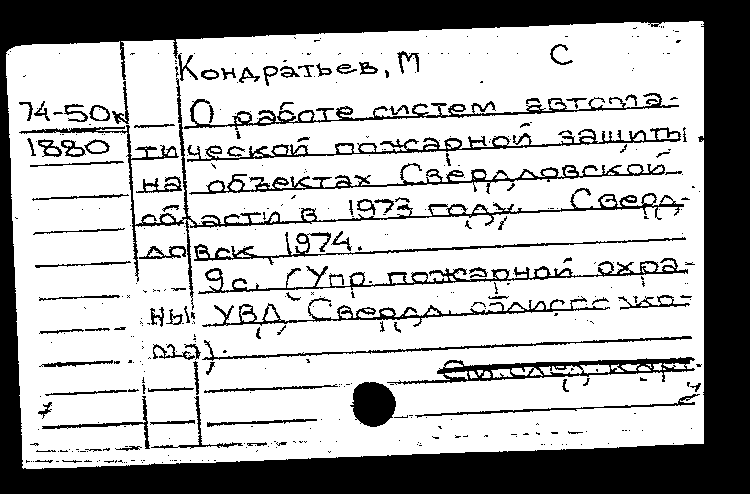 Кондратьев, М С
74-50к О работе систем автома-
1880 тической пожарной защиты
на объектах Свердловской
области в 1973 году. Сверд-
ловск, 1974.
9с. (Упр. пожарной охра-
ны УВД Свердл. облисполко-
ма).
См. след. карт.